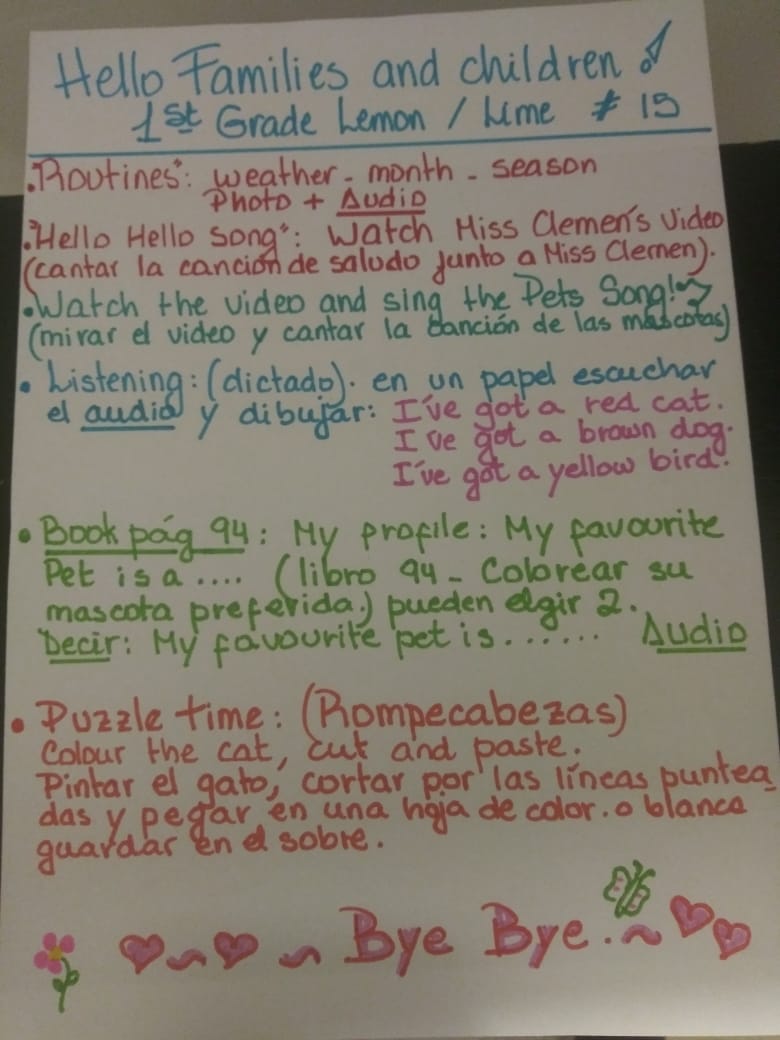 Hello Families and children!
1st Grade Lemon / Lime # 15
• "Routines": weather - month - season
Photo + Audio
• "Hello Hello song": Watch Miss Clemen's Video
(cantar la canción de saludo junto a Miss Clemen).
• Watch the video and sing the Pets Song!
(mirar el video y cantar la canción de las mascotas)
• Listening: (dictado). en un papel escuchar
el audio y dibujar: I've got a red cat.
I've got a brown dog.
I've got a yellow bird.
• Book pág 94: My profile: My favourite
Pet is a .... (libro 94 - Colorear su
mascota preferida.) pueden elgir 2.
Decir: My favourite pet is ....... Audio
• Puzzle time: (Rompecabezas)
Colour the cat, cut and paste.
Pintar el gato, cortar por las líneas puntea_
das y pegar en una hoja de color. o blanca
guardar en el sobre.
~ ~ Bye Bye. ~